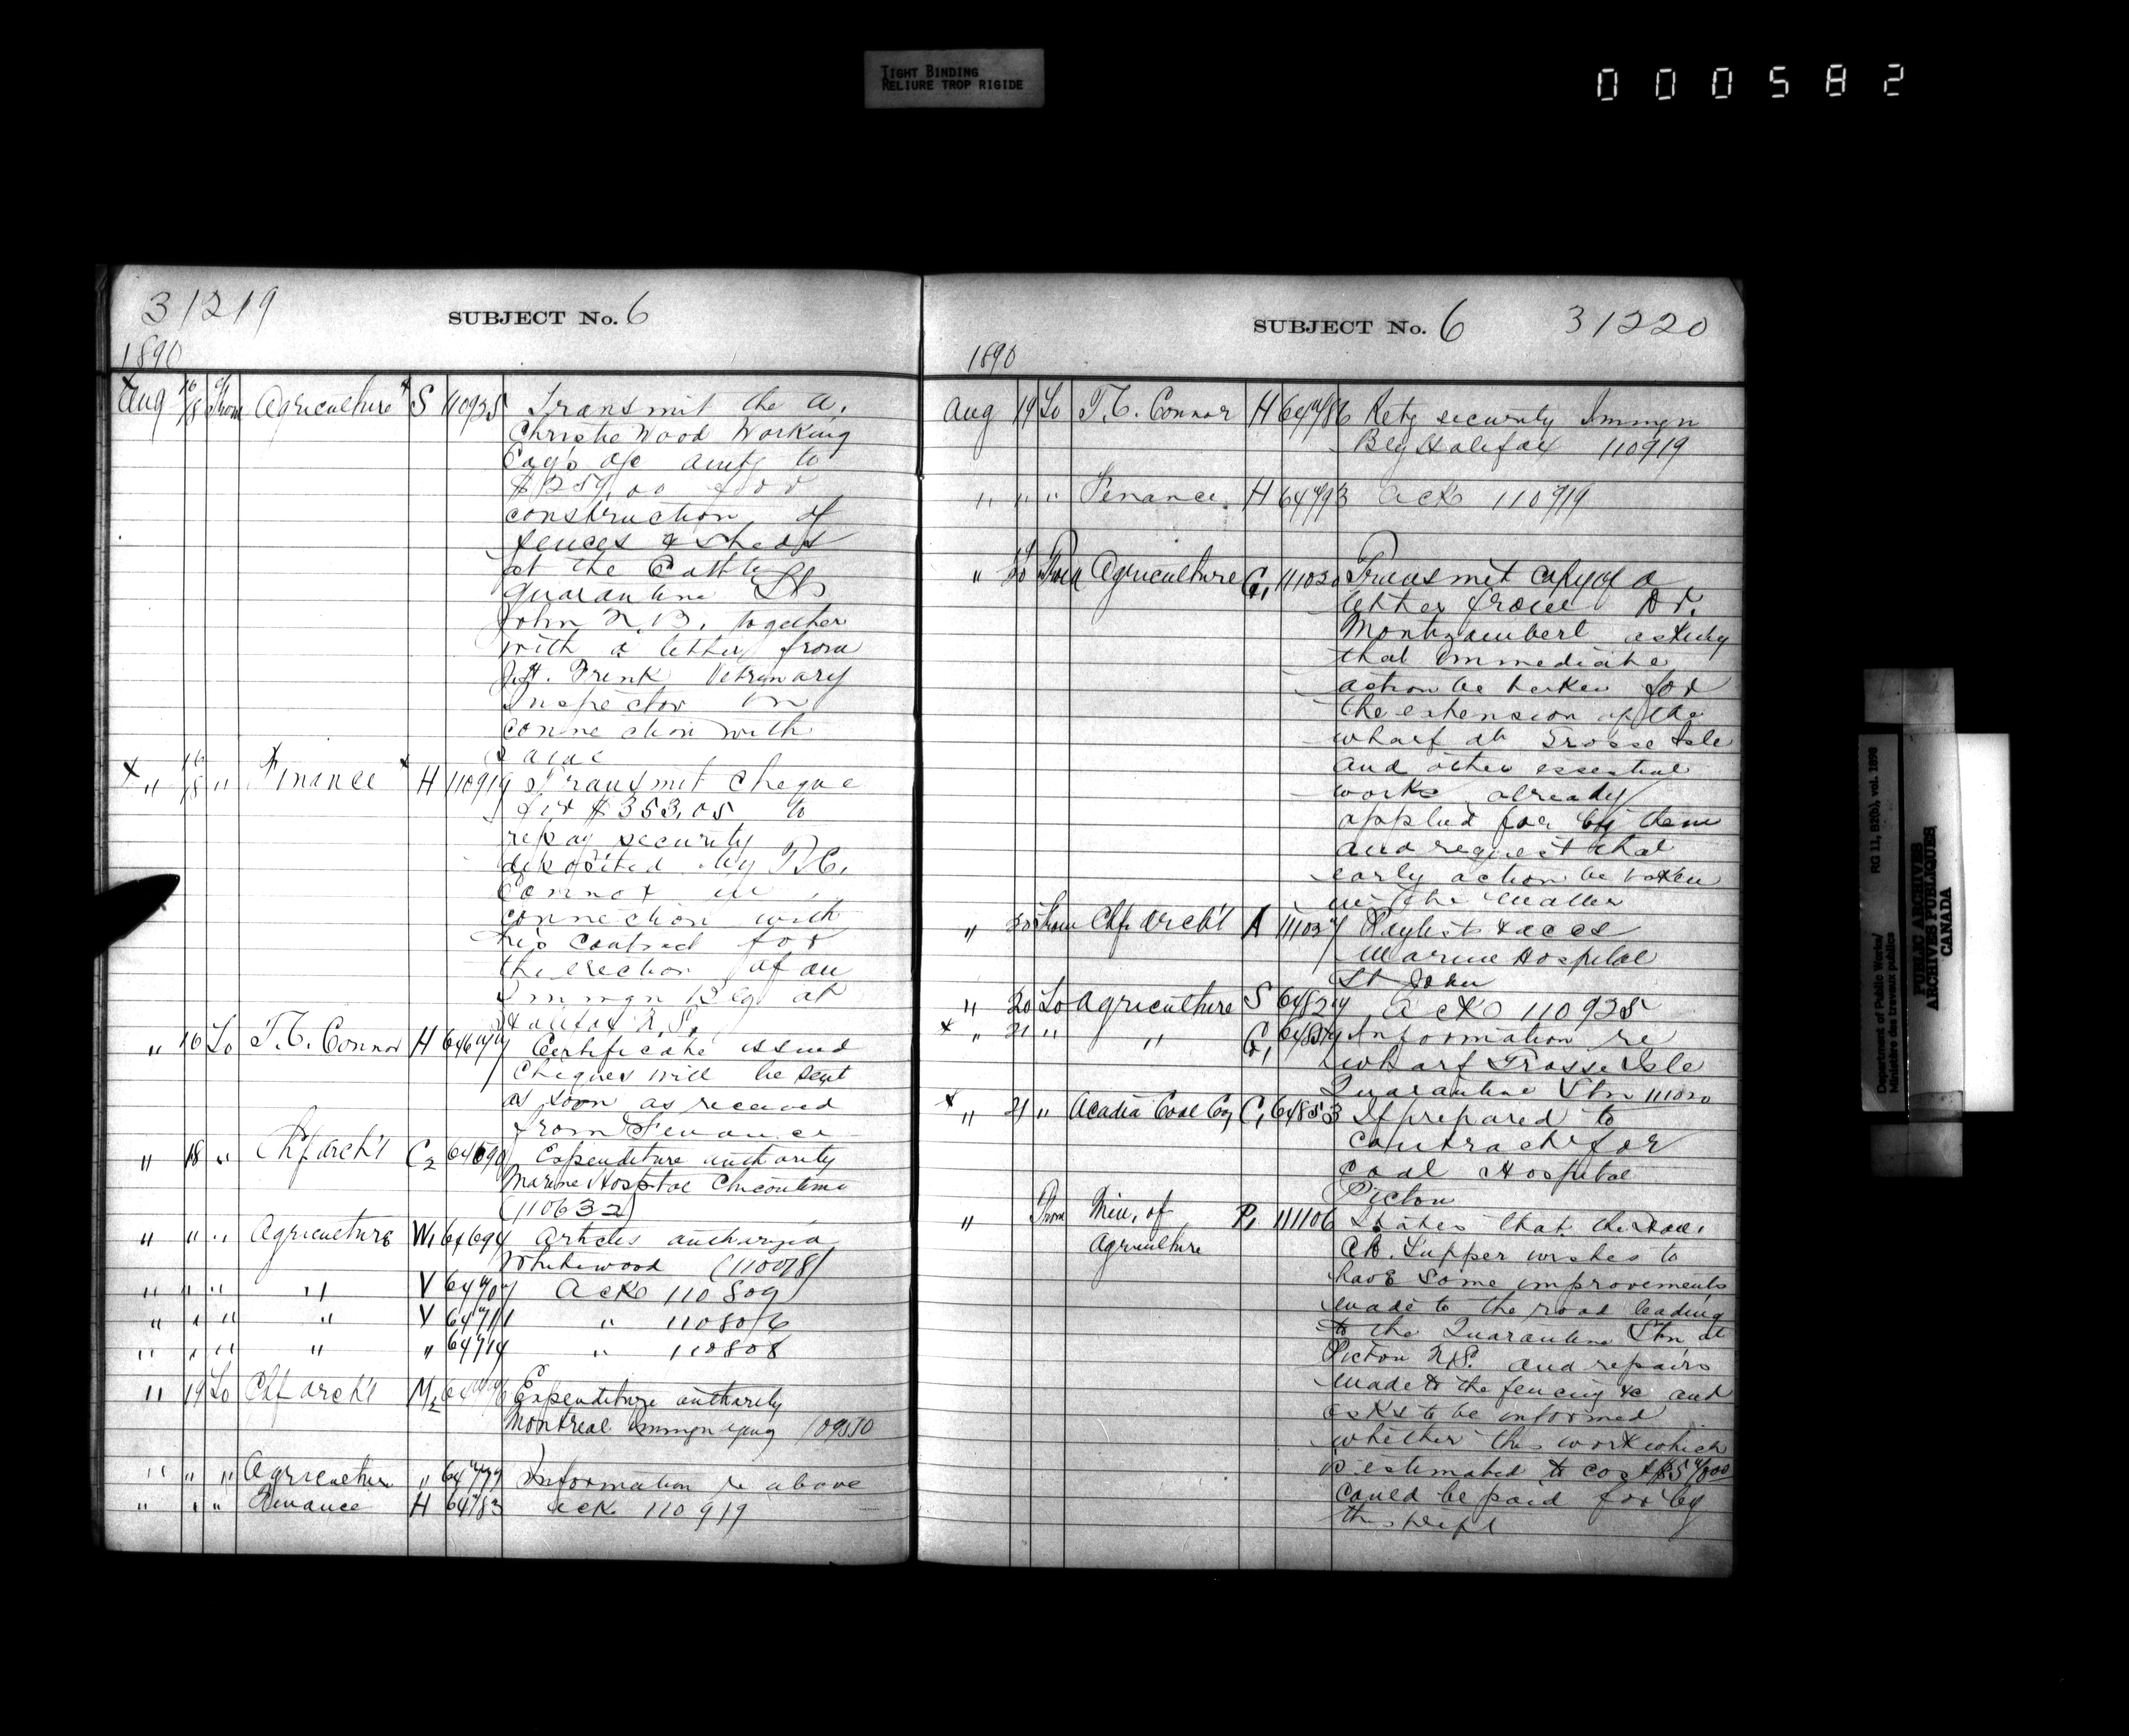 TIGHT BINDING
RELIURE TROP RIGIDE
000582
31219
SUBJECT No. 6
1890
Aug 16/18 From Agriculture S 110925 Transmit the A.
Christie Wood Working
Coy's a/c amtg to
for
construction of
fences & sheds
at the Cattle
quarantine St
John N.B. together
with a letter from
J.H. Frink Vetrinary
Inspector in
connection with
same
" 16/18 " Finance H 110919 Transmit cheque
for $353.05 to
repay security
deposited by T.C.
Connor in
connection with
his contract for
the erection of an
Immgn Bldg at
Halifax N.S.
" 16 To T.C. Connor H Certificate issued
Cheques will be sent
as soon as received
from Finance
" 18 " Chf arch't C2 64690 Expenditure authority
Marine Hospital Chicoutimi
(110632)
" " " Agriculture W1 64694 Articles
Whitewood (110078)
" " " " V 64707 Ack 110809
" " " " V 64711 " 110806
" " " " " 64714 " 110808
" 19 To Chf arch't M2 Expenditure authority
Montreal immgn 109550
" " " Agriculture " 64779 Information re above
" " " Finance H 64783 ack 110919
SUBJECT No. 6
31220
1890
Aug 19 To T.C. Connor H 64786 Retg security Immgn
Bldg Halifax 110919
" " " Finance H 64793 ack 110919
" 20 From Agriculture G1 111020 Transmit copy of a
letter from Dr.
Montizambert asking
that immediate
action be taken for
the extension of the
wharf at Grosse Isle
and other essential
works already
applied for by them
and request that
early action be taken
in the matter
" 20 From Chf arch't A 111037 Paylists & accs
Marine Hospital
St John
" 20 To Agriculture S 64827 Ack 110925
" 21 " " G1 Information re
wharf Grosse Isle
Quarantine Stn 111020
" 21 " Acadia Coal Coy C1 64853 If prepared to
contract for
coal Hospital
Pictou
" From Min. of P1 111106 States that the Hon.
Agriculture
C.H. Tupper wishes to
have some improvements
made to the road leading
to the Quarantine Stn at
Pictou N.S. and repairs
made to the fencing &c and
asks to be informed
whether this work which
is estimated to cost
could be paid for by
this Dept
Department of Public Works/
Ministère des travaux publics
RG 11, B2(b), vol. 1898
PUBLIC ARCHIVES
ARCHIVES PUBLIQUES
CANADA